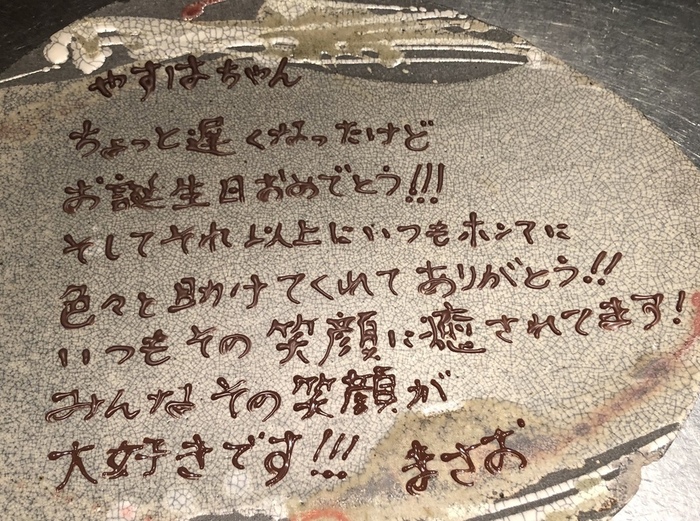 やすはちゃん
ちょっと遅くなったけど
お誕生日おめでとう!!!
そしてそれ以上にいつもホンマに
色々と助けてくれてありがとう!!
いつもその笑顔に癒されてます!
みんなその笑顔が
大好きです!!! まさお